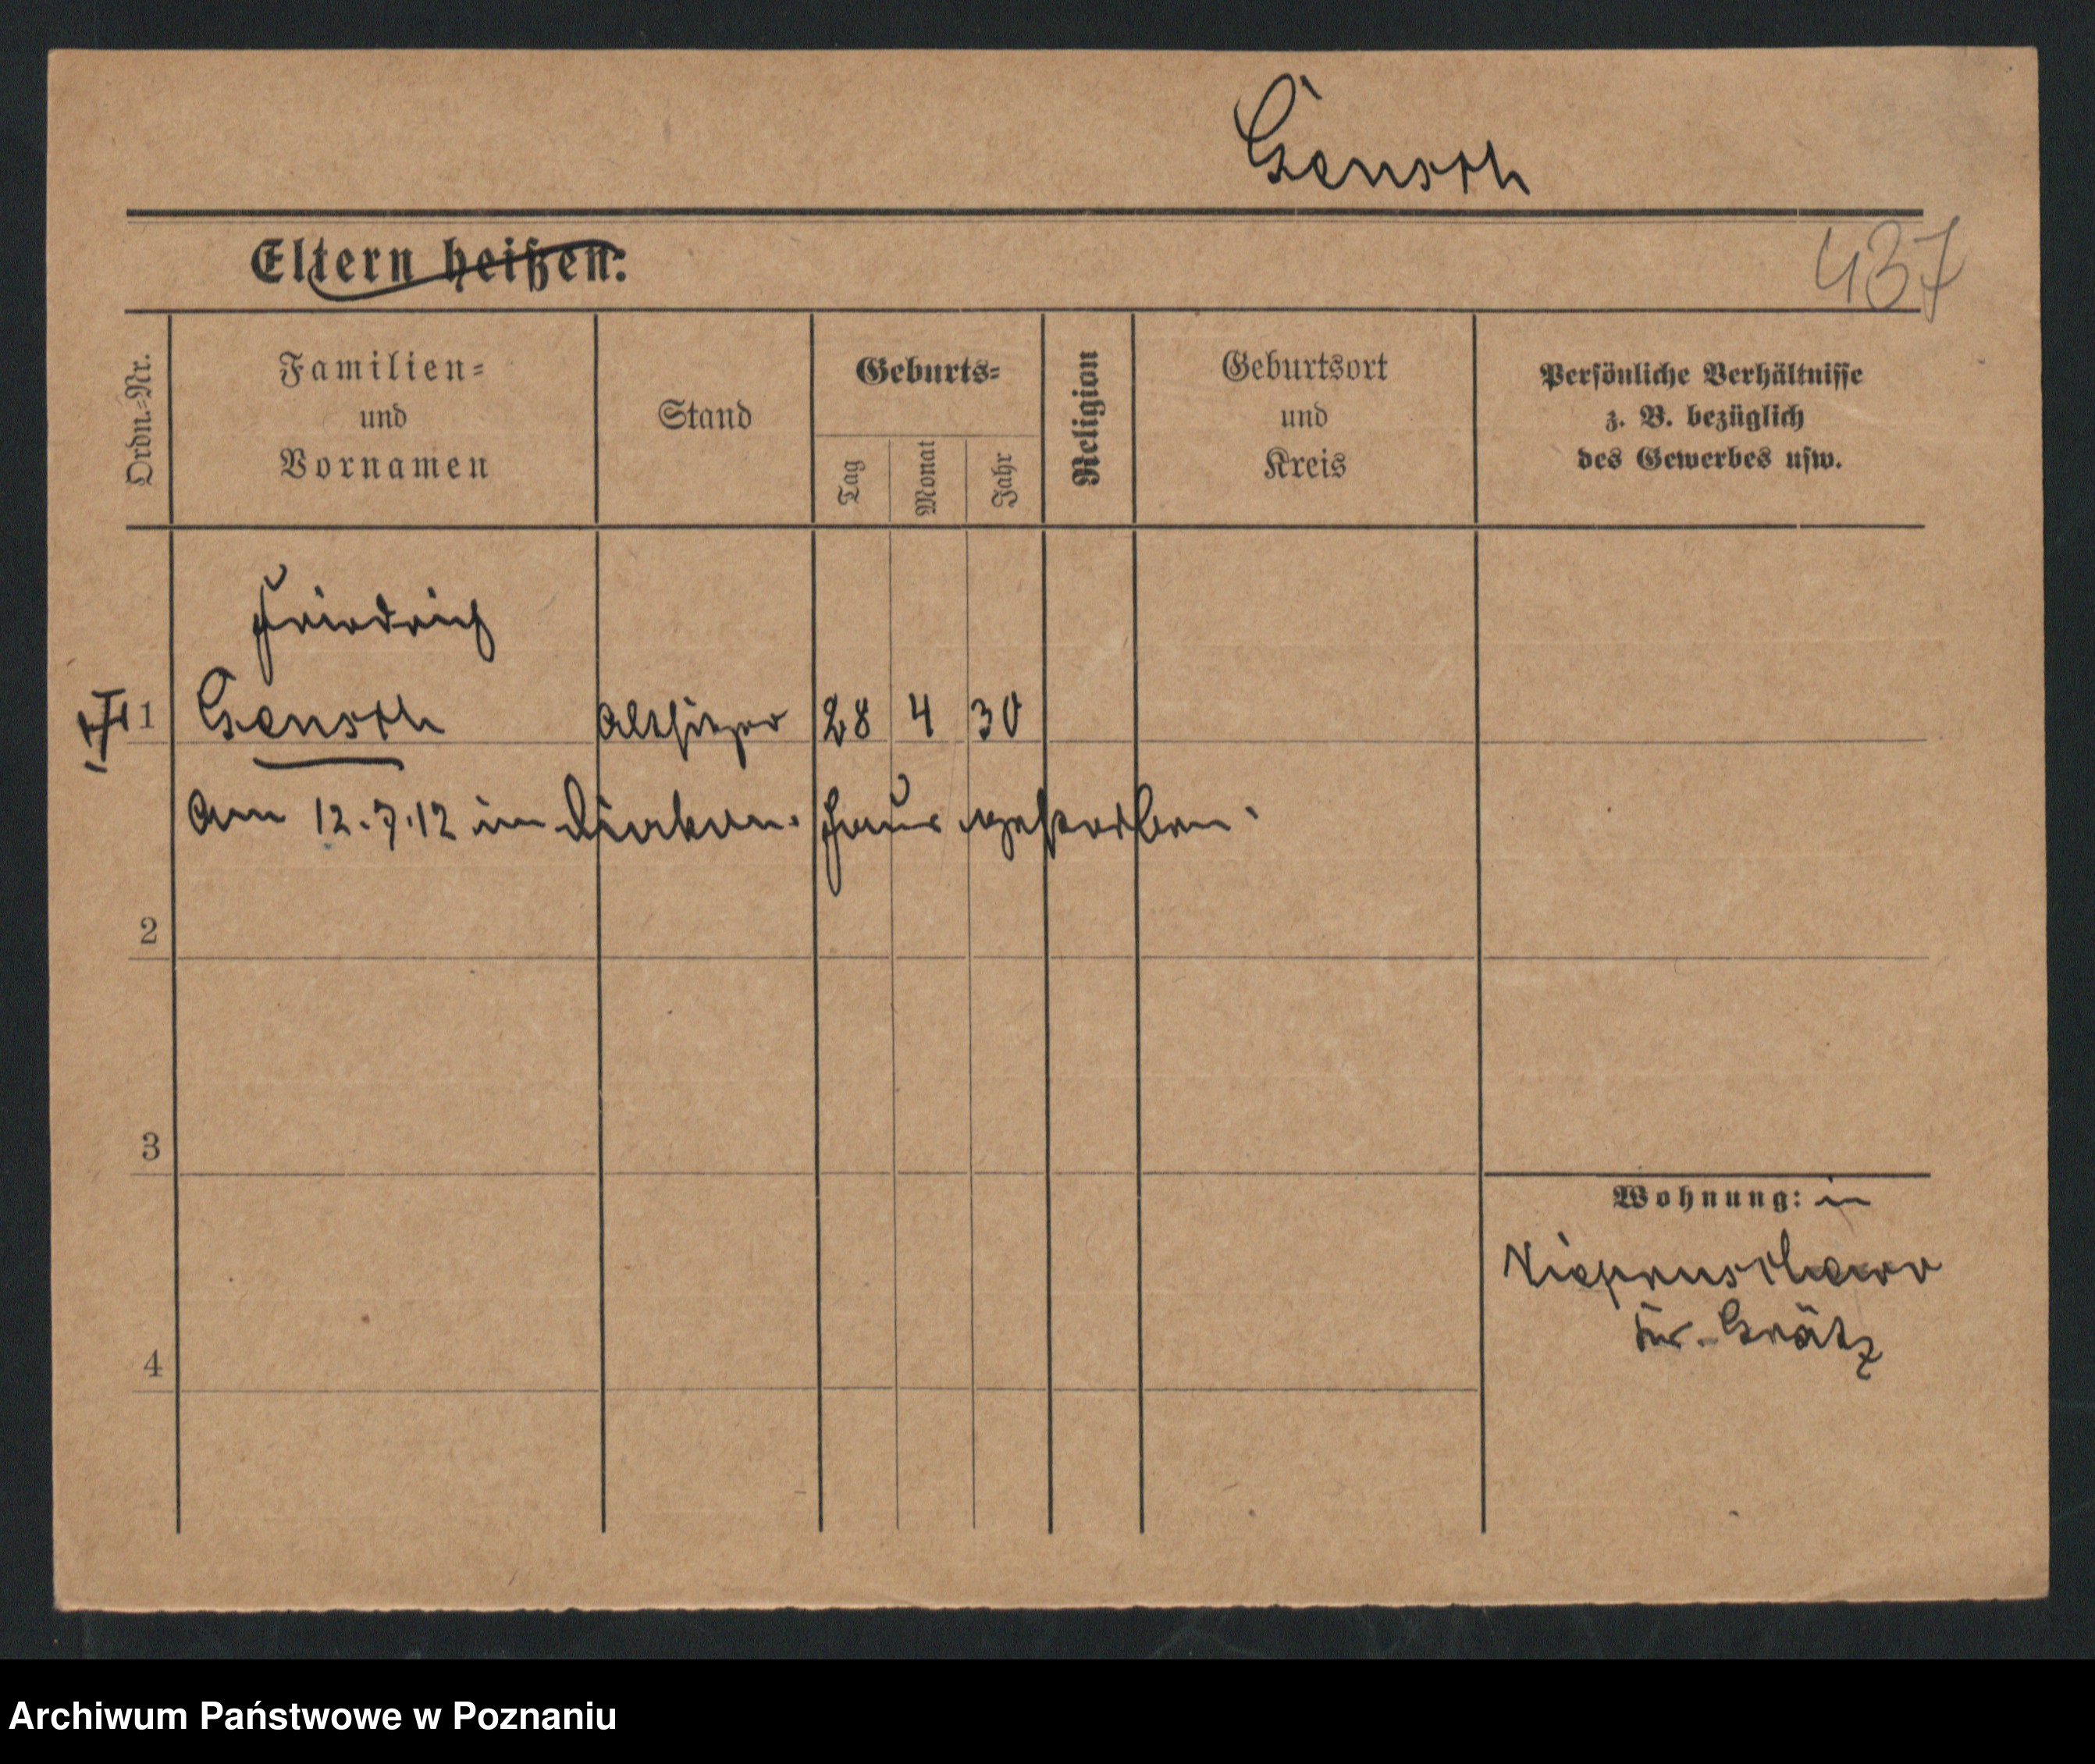 Gensch
Eltern heißen:
437
Ordn.-Nr.
Familien-
und
Vornamen
Stand
Geburts-
Tag
Monat
Jahr
Religion
Geburtsort
und
Kreis
Persönliche Verhältnisse
z. B. bezüglich
des Gewerbes usw.
Friedrich
1 Gensch Altsitzer 28 4 30
Am 12.7.12 im Diakon. Haus gestorben.
2
3
Wohnung: in
Kr. Grätz
4
Archiwum Państwowe w Poznaniu